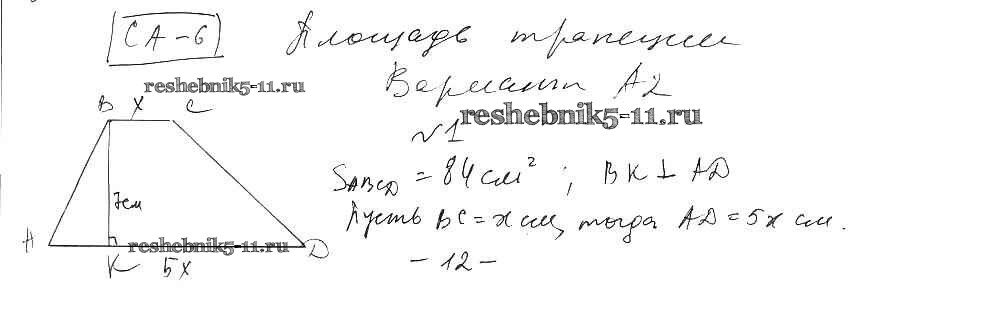 СА-6 Площадь трапеции
reshebnik5-11.ru
Вариант А2
reshebnik5-11.ru
B x C
№1
S_ABCD = 84 см² ; BK ⊥ AD
7см
Пусть BC = x см, тогда AD = 5x см.
A
reshebnik5-11.ru
D
K 5x
- 12 -